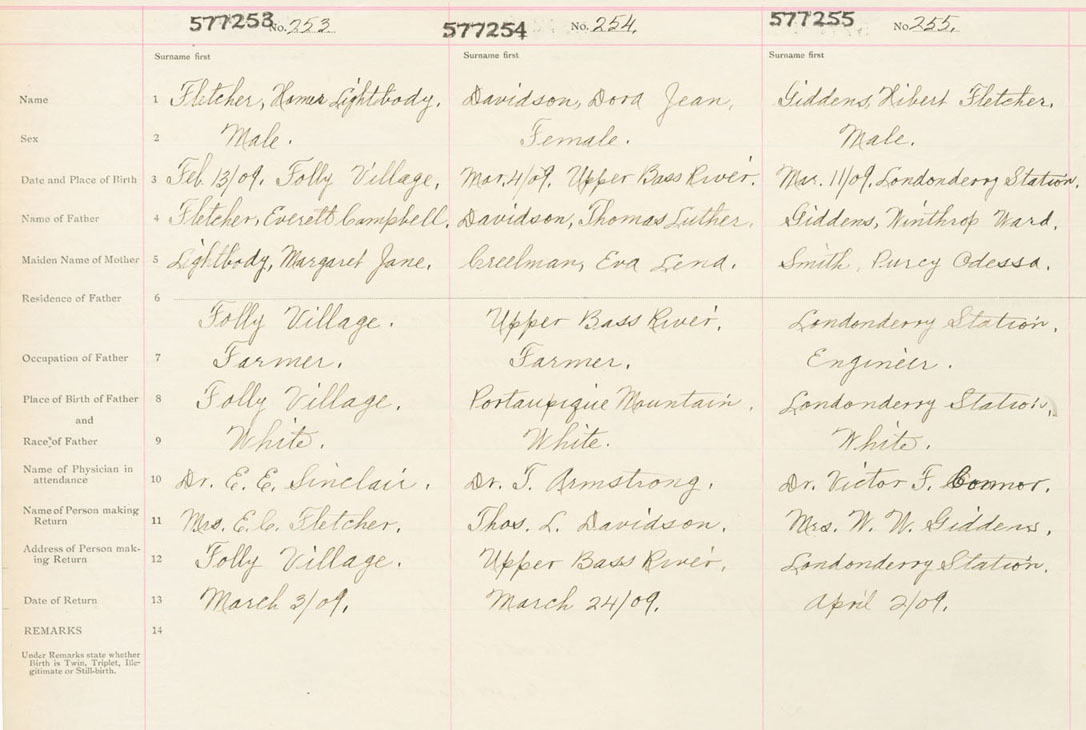 577253 No. 253 577254 No. 254. 577255 No. 255.
Surname first Surname first Surname first
Name 1 Fletcher, Homer Lightbody. Davidson, Dora Jean, Giddens, Hibert Fletcher.
Sex 2 Male. Female. Male.
Date and Place of Birth 3 Feb. 13/09. Folly Village, Mar. 4/09. Upper Bass River. Mar. 11/09. Londonderry Station.
Name of Father 4 Fletcher, Everett Campbell. Davidson, Thomas Luther. Giddens, Winthrop Ward.
Maiden Name of Mother 5 Lightbody, Margaret Jane. Creelman, Eva Lena. Smith, Odessa.
Residence of Father 6
Folly Village. Upper Bass River. Londonderry Station.
Occupation of Father 7 Farmer. Farmer. Engineer.
Place of Birth of Father 8 Folly Village. Portaupique Mountain. Londonderry Station.
and
Race of Father 9 White. White. White.
Name of Physician in
attendance 10 Dr. E. E. Sinclair. Dr. T. Armstrong. Dr. Victor F. Connor.
Name of Person making
Return 11 Mrs. E. C. Fletcher. Thos. L. Davidson. Mrs. W. W. Giddens.
Address of Person mak-
ing Return 12 Folly Village. Upper Bass River. Londonderry Station.
Date of Return 13 March 3/09. March 24/09. April 2/09.
REMARKS 14
Under Remarks state whether
Birth is Twin, Triplet, Ille-
gitimate or Still-birth.